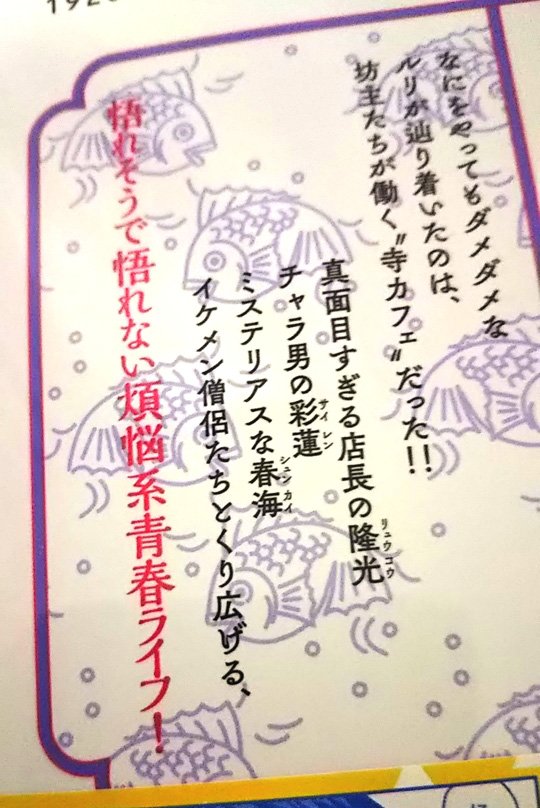 なにをやってもダメダメな
ルリが辿り着いたのは、
坊主たちが働く〝寺カフェ〟だった!!
真面目すぎる店長の隆光
リュウコウ
チャラ男の彩蓮
サイレン
ミステリアスな春海
シュンカイ
イケメン僧侶たちとくり広げる、
悟れそうで悟れない煩悩系青春ライフ！